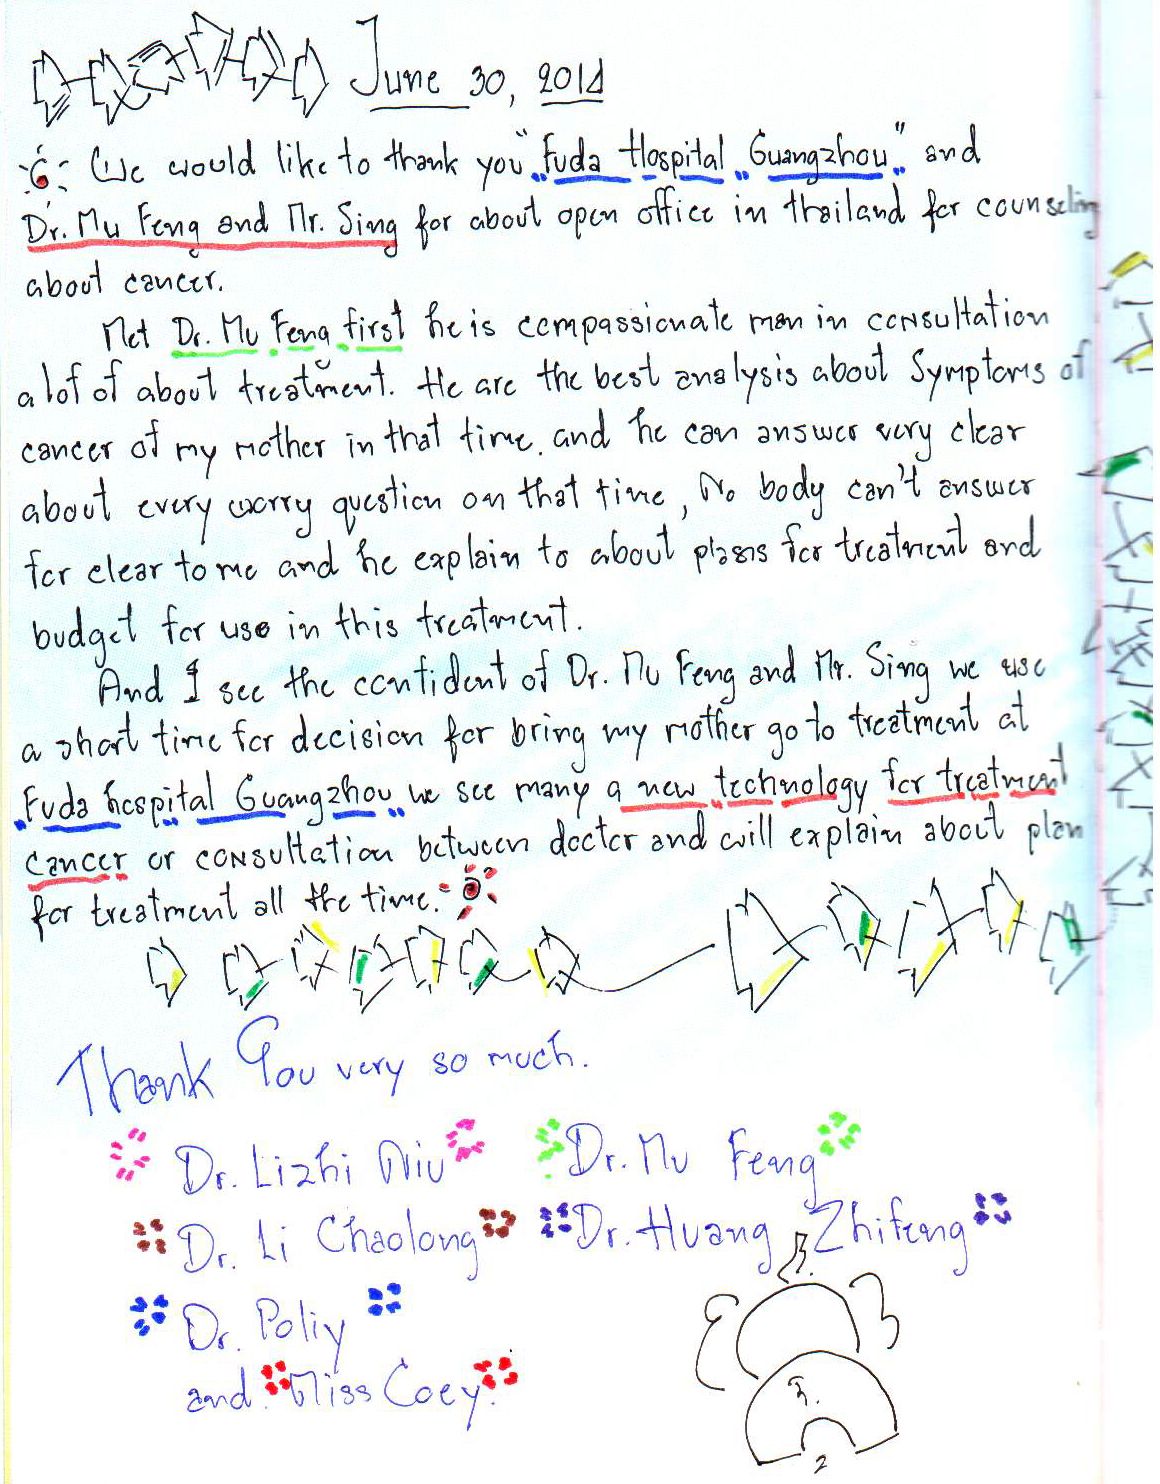 June 30, 2014
We would like to thank you "Fuda Hospital Guangzhou" and
Dr. Mu Feng and Mr. Sing for about open office in thailand for counseling
about cancer.
Met Dr. Mu Feng first he is compassionate man in consultation
a lot of about treatment. He are the best analysis about Symptoms of
cancer of my mother in that time. and he can answer very clear
about every worry question on that time, No body can't answer
for clear to me and he explain to about plans for treatment and
budget for use in this treatment.
And I see the confident of Dr. Mu Feng and Mr. Sing we use
a short time for decision for bring my mother go to treatment at
Fuda hospital Guangzhou we see many a new technology for treatment
cancer or consultation between doctor and will explain about plan
for treatment all the time.
Thank You very so much.
Dr. Lizhi Niu Dr. Mu Feng
Dr. Li Chaolong Dr. Huang Zhifeng
Dr. Poliy
and Miss Coey.